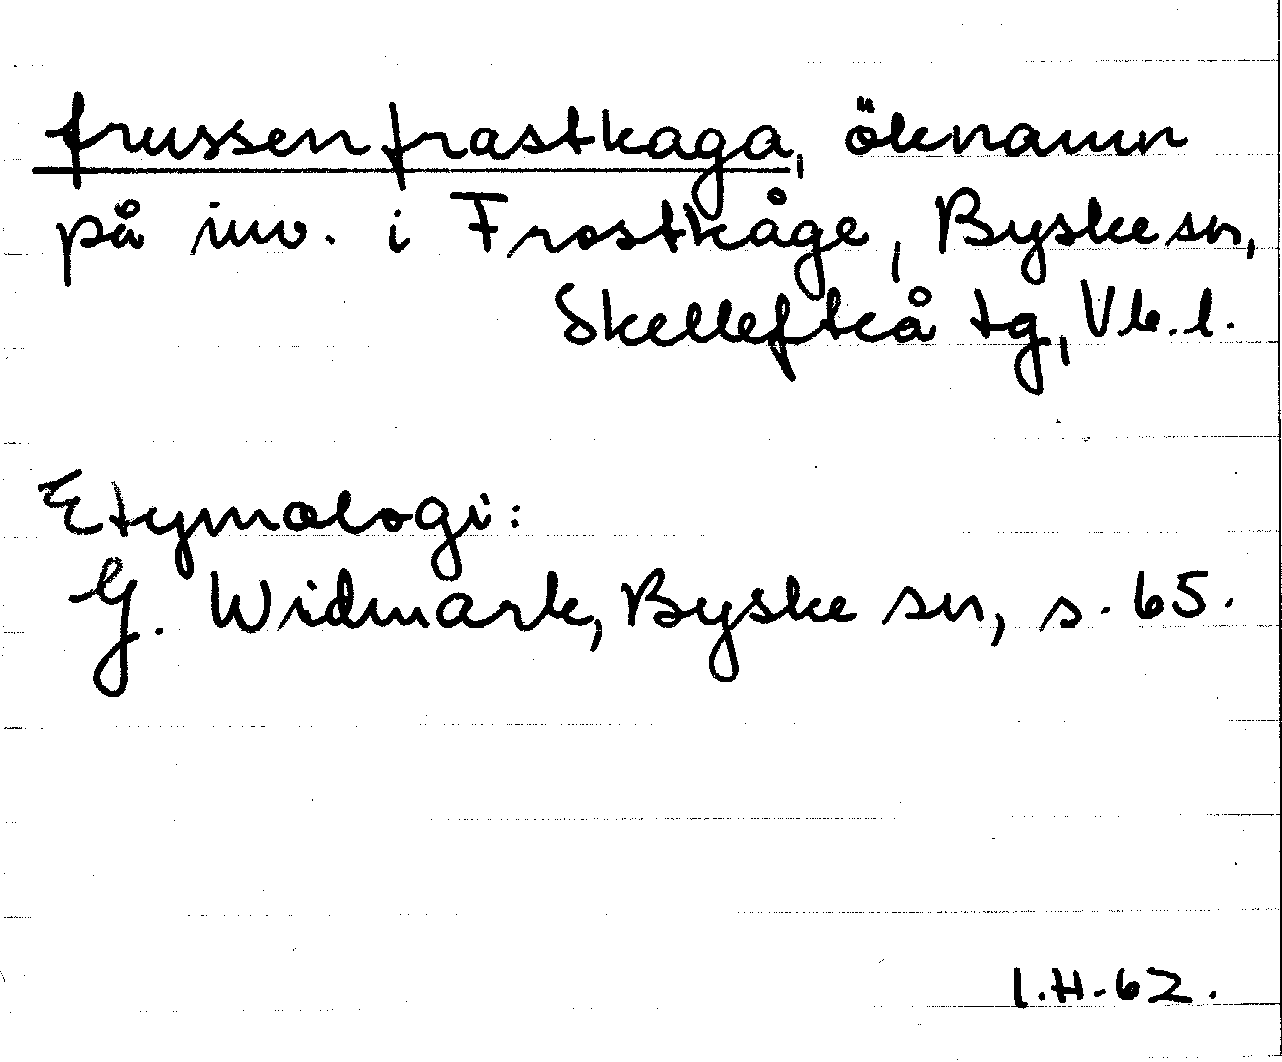 frussenfrastkaga, öknamn
på inv. i Frostkåge, Byske sn,
Skellefteå tg, Vb.l.
Etymologi:
G. Widmark, Byske sn, s. 65.
I.H-62.